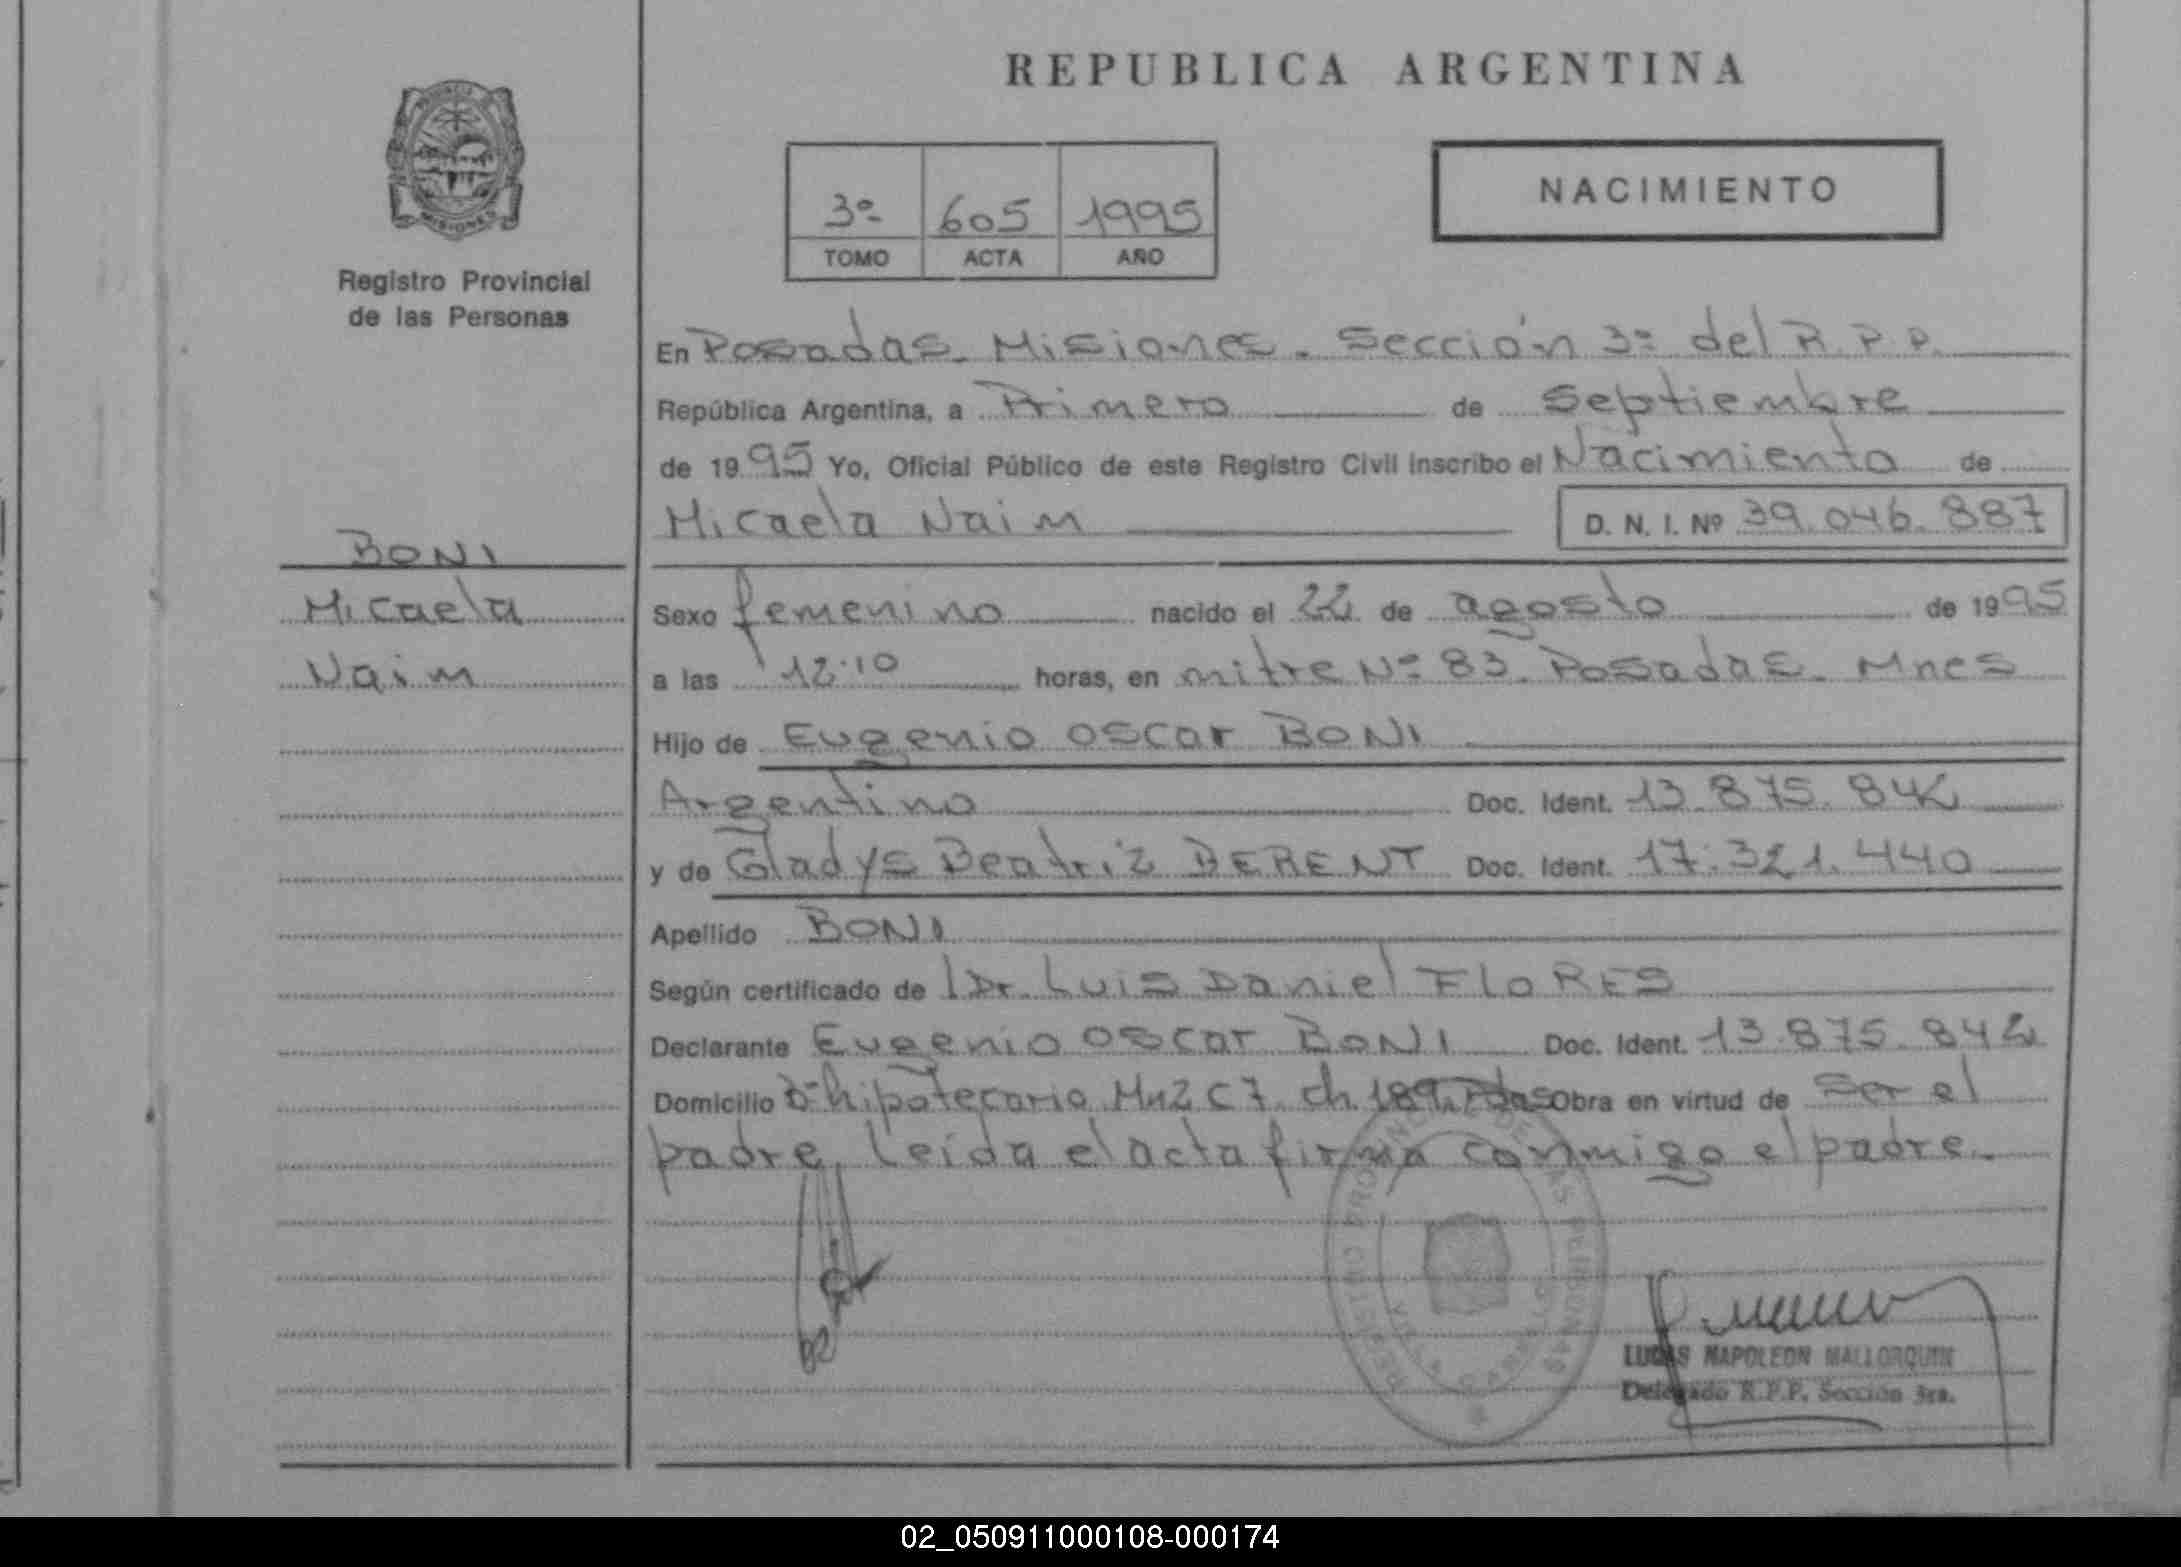 REPUBLICA ARGENTINA
PROVINCIA DE
MISIONES
Registro Provincial
de las Personas
3º 605 1995
TOMO ACTA AÑO
NACIMIENTO
En Posadas. Misiones. Sección 3ª del R.P.P.
República Argentina, a Primero de Septiembre
de 1995 Yo, Oficial Público de este Registro Civil inscribo el Nacimiento de
Micaela Naim D. N. I. Nº 39.046.887
BONI
Micaela
Naim
Sexo femenino nacido el 22 de agosto de 1995
a las 12:10 horas, en mitre Nº 83. Posadas. Mnes
Hijo de Eugenio Oscar BONI
Argentino Doc. Ident. 13.875.842
y de Gladys Beatriz BERENT Doc. Ident. 17.321.440
Apellido BONI
Según certificado de Dr. Luis Daniel FLORES
Declarante Eugenio Oscar BONI Doc. Ident. 13.875.842
Domicilio Bº hipotecario Mnz C7 ch. 189. Pdas Obra en virtud de Ser el
padre, Leída el acta firma conmigo el padre.
REGISTRO DE LAS PERSONAS
LUCAS NAPOLEON MALLORQUIN
Delegado R.P.P. Sección 3ra.
02_050911000108-000174